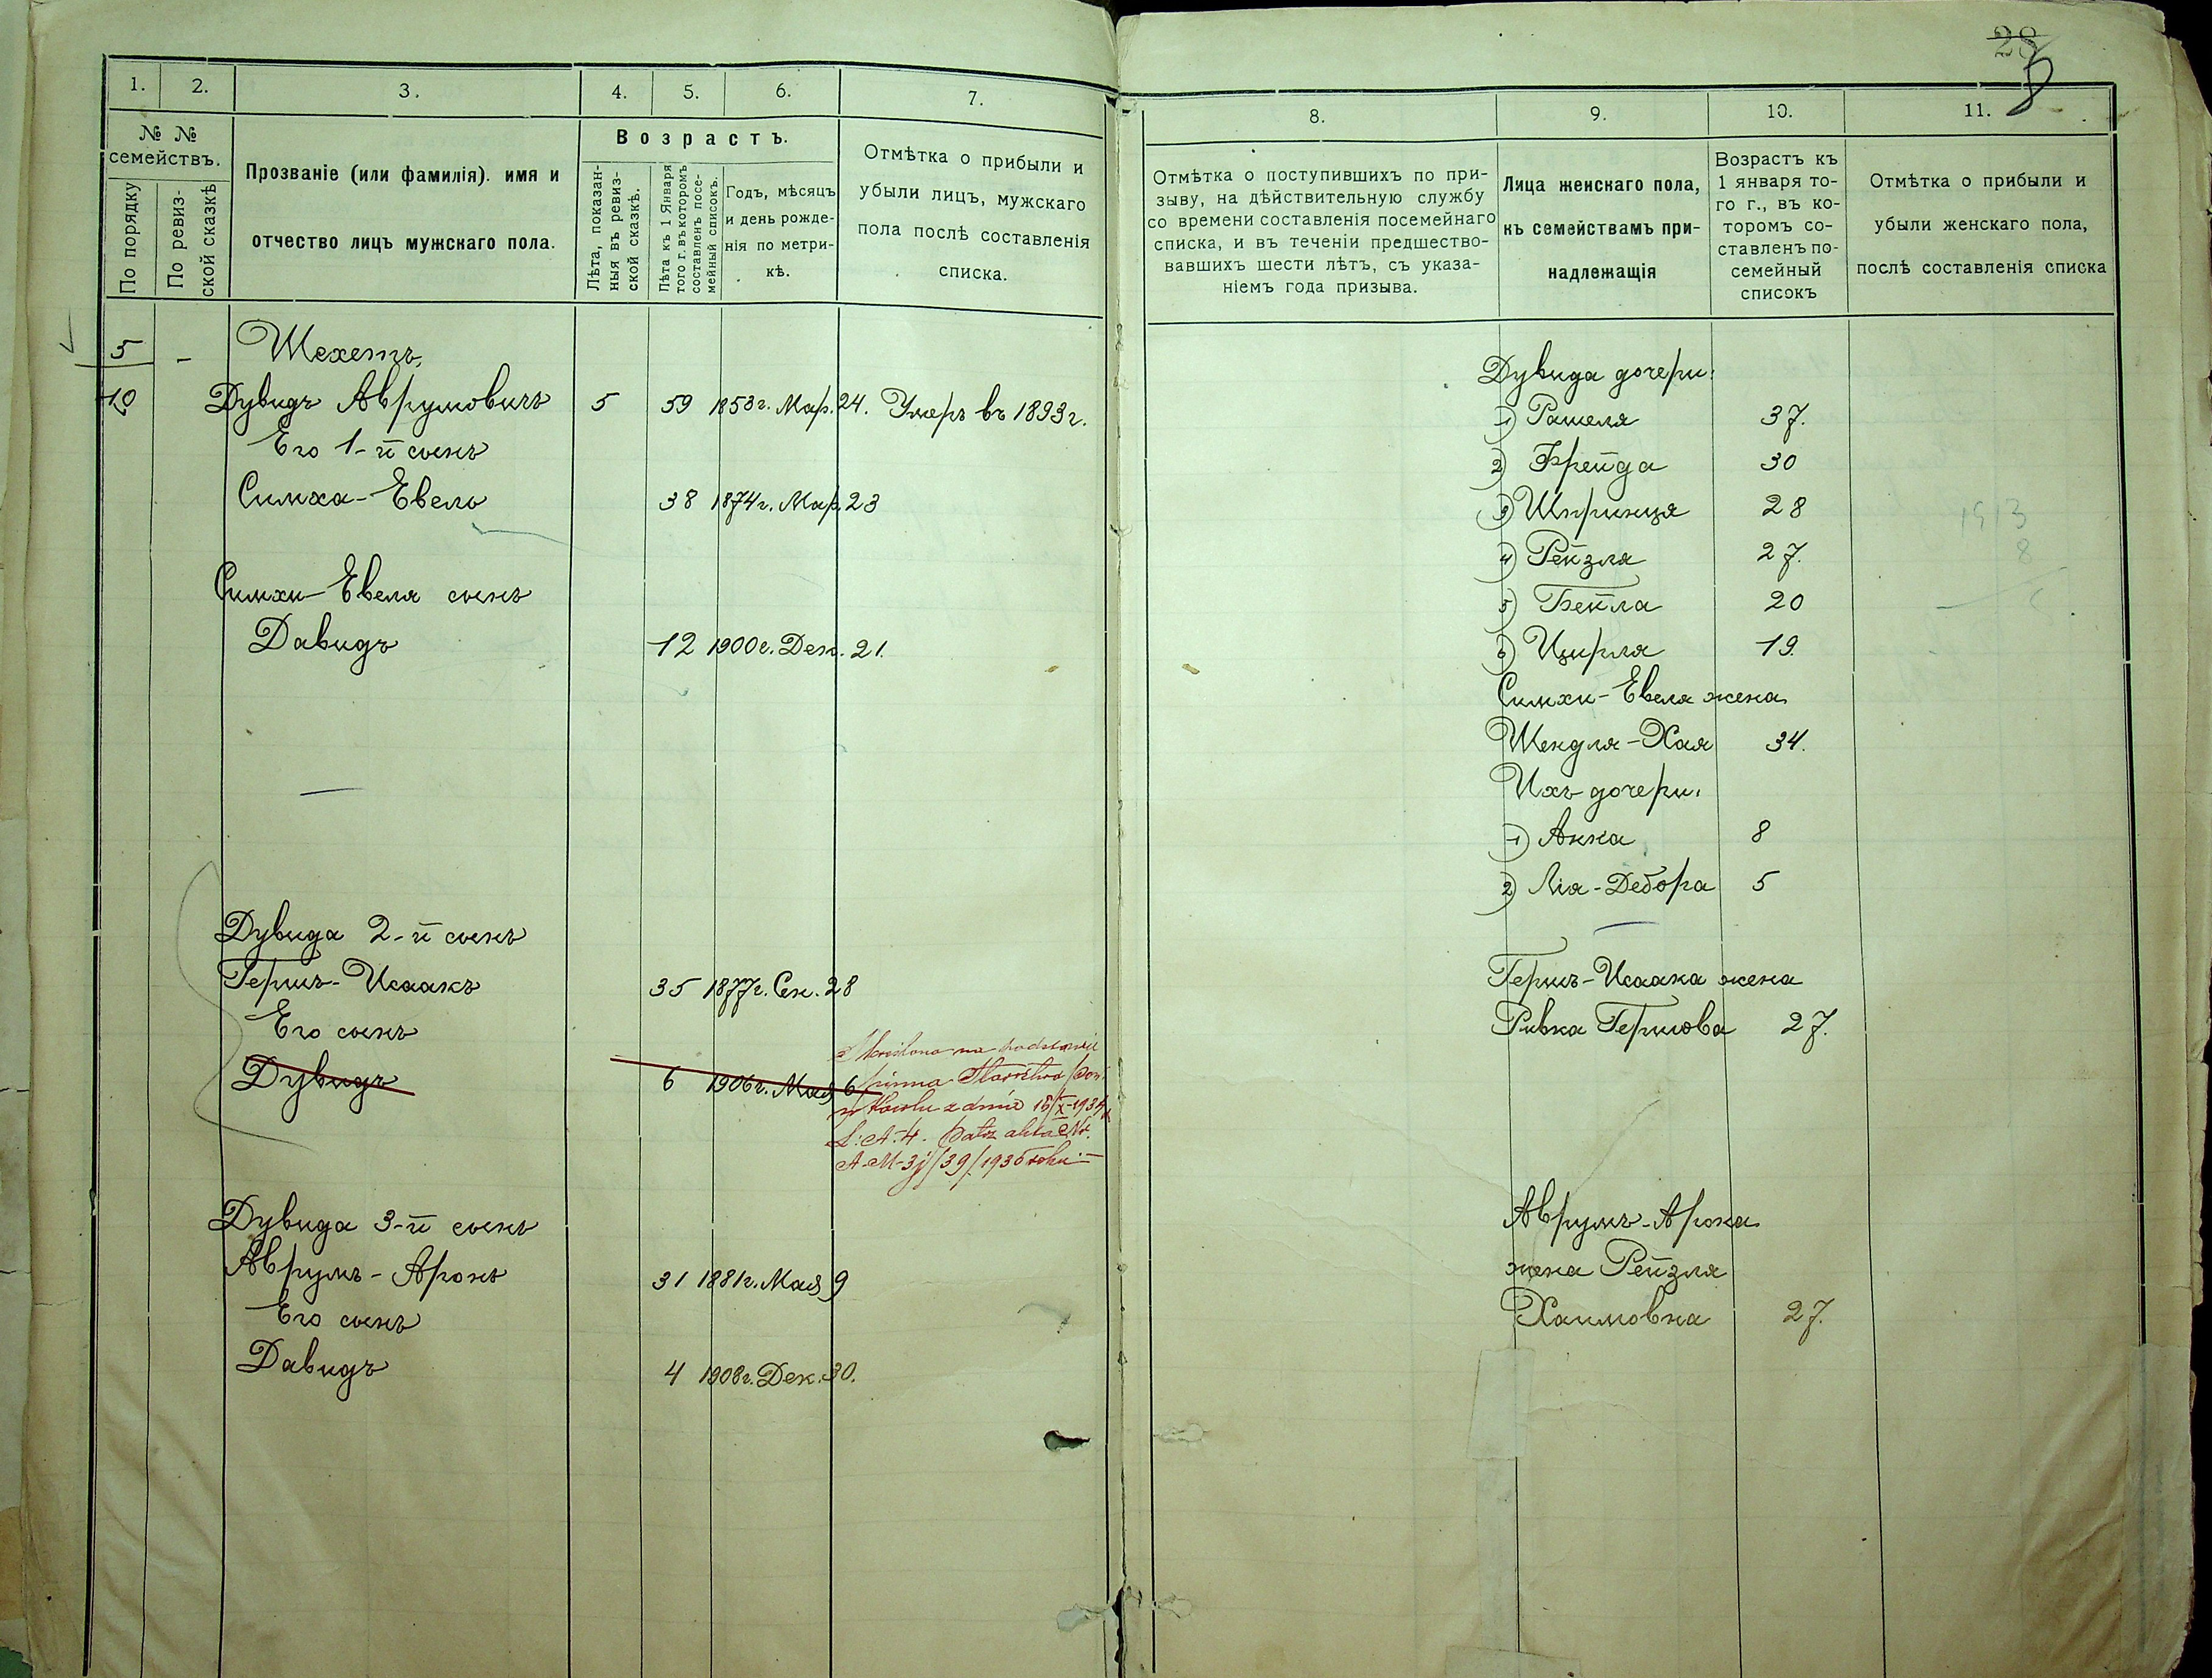 28
1. 2. 3. 4. 5. 6. 7.
№ № семействъ.
По порядку
По ревиз-
ской сказкѣ
Прозваніе (или фамилія). имя и
отчество лицъ мужскаго пола.
Возрастъ.
Лѣта, показан-
ныя въ ревиз-
ской сказкѣ.
Лѣта къ 1 Января
того г. въ которомъ
составленъ посе-
мейный списокъ.
Годъ, мѣсяцъ
и день рожде-
нія по метри-
кѣ.
Отмѣтка о прибыли и
убыли лицъ, мужскаго
пола послѣ составленія
списка.
5 -
Шехетъ
10 Дувидъ Аврумовичъ 5 59 1853г. Мар. 24. Умеръ въ 1893г.
Его 1-й сынъ
Симха-Евель 38 1874г. Мар. 23
Симхи-Евеля сынъ
Давидъ 12 1900г. Дек. 21.
Дувида 2-й сынъ
Гершъ-Исаакъ 35 1877г. Сен. 28
Его сынъ
Дувидъ 6 1906г. Мая 6
na podstawie
z dnia
L: A. 4.
Дувида 3-й сынъ
Аврумъ-Аронъ 31 1881г. Мая 9
Его сынъ
Давидъ 4 1908г. Дек. 30.
8. 9. 10. 11.
Отмѣтка о поступившихъ по при-
зыву, на дѣйствительную службу
со времени составленія посемейнаго
списка, и въ теченіи предшество-
вавшихъ шести лѣтъ, съ указа-
ніемъ года призыва.
Лица женскаго пола,
къ семействамъ при-
надлежащія
Возрастъ къ
1 января то-
го г., въ ко-
торомъ со-
ставленъ по-
семейный
списокъ
Отмѣтка о прибыли и
убыли женскаго пола,
послѣ составленія списка
Дувида дочери:
1) Рашеля 37.
2) Фрейда 30
3) Шпринця 28
4) Рейзля 27.
5) Бейла 20
6) Ципля 19.
1913
8
Симхи-Евеля жена
Шендля-Хая 34.
Ихъ дочери:
1) Анна 8
2) Лія-Дебора 5
Гершъ-Исаака жена
Ривка Гершова 27.
Аврумъ-Арона
жена Рейзля
Хаимовна 27.